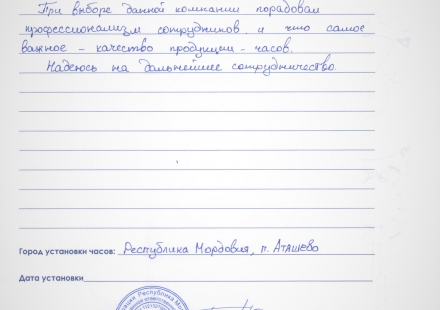 При выборе данной компании порадовал
профессионализм сотрудников и что самое
важное – качество продукции – часов.
Надеюсь на дальнейшее сотрудничество.
Город установки часов: Республика Мордовия, п. Аташево
Дата установки